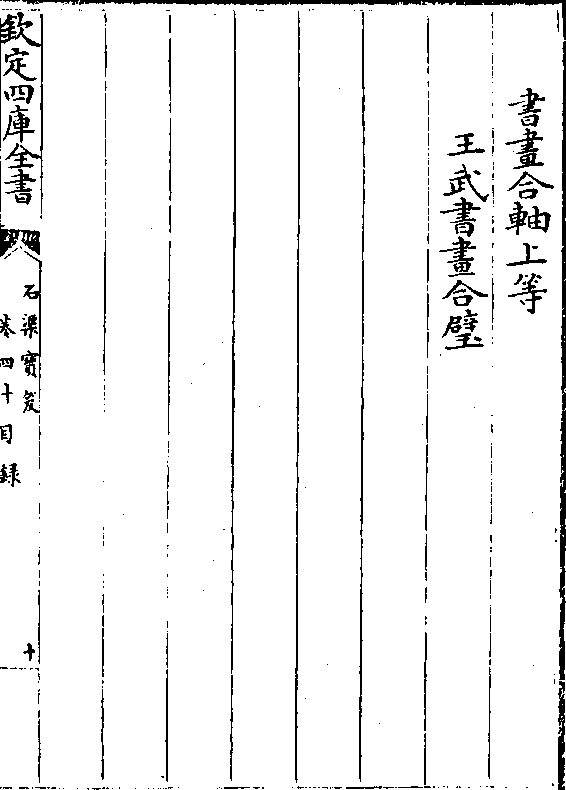 書畫合軸上等
王武書畫合璧
欽定四庫全書
石渠寶笈
卷四十目錄
十